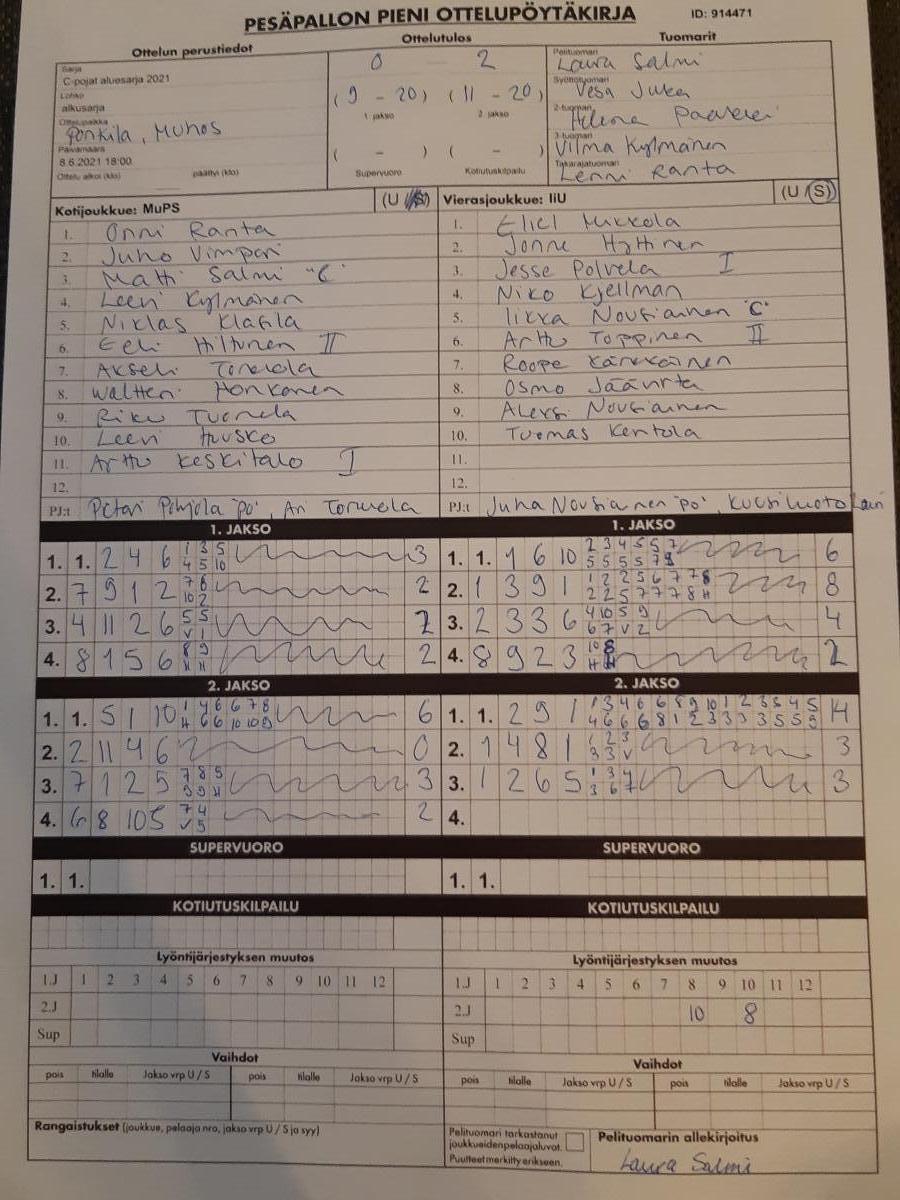 PESÄPALLON PIENI OTTELUPÖYTÄKIRJA
ID: 914471
Ottelun perustiedot
Sarja
C-pojat aluesarja 2021
Lohko
alkusarja
Ottelupaikka
Ponkila, Muhos
Päivämäärä
8.6.2021 18:00
Ottelu alkoi (klo) päättyi (klo)
Ottelutulos
0 2
(9 - 20) (11 - 20)
1. jakso 2. jakso
( - ) ( - )
Supervuoro Kotiutuskilpailu
Tuomarit
Pelituomari
Laura Salmi
Syöttötuomari
Vesa Juka
2-tuomari
Helena
3-tuomari
Vilma Kylmänen
Takarajatuomari
Lenni Ranta
Kotijoukkue: MuPS (U / S)
1. Onni Ranta
2. Juho Vimpari
3. Matti Salmi "C"
4. Leevi Kylmänen
5. Niklas Klasila
6. Eeli Hiltunen II
7. Akseli Torvela
8. Waltteri Honkanen
9. Riku Tuorila
10. Leevi Huusko
11. Arttu Keskitalo I
12.
PJ:t Petari Pohjola "po", Ari Torvela
Vierasjoukkue: IiU (U / S)
1. Elicl Mikkola
2. Jonne Hyttinen
3. Jesse Polvela I
4. Niko Kjellman
5. Iikka Nousiainen "C"
6. Arttu Toppinen II
7. Roope Kärkkäinen
8. Osmo Jäävirta
9. Aleksi Nousiainen
10. Tuomas Kentola
11.
12.
PJ:t Juha Nousiainen "po", Kuusiluoto Lauri
1. JAKSO
1. 1. 2 4 6 1 3 5 3
4 5 10
2. 7 9 1 2 7 8 2
10 2
3. 4 11 2 6 5 5 2
V 1
4. 8 1 5 6 8 9 2
H H
1. JAKSO
1. 1. 1 6 10 2 3 4 5 5 7 6
5 5 5 5 7 9
2. 1 3 9 1 1 2 2 5 6 7 7 8 8
2 2 5 7 7 7 8 H
3. 2 3 3 6 4 10 5 9 4
6 7 V 2
4. 8 9 2 3 10 8 2
H H
2. JAKSO
1. 1. 5 1 10 1 4 6 6 7 8 6
H 6 6 10 10 9
2. 2 11 4 6 0
3. 7 1 2 5 7 8 5 3
9 9 H
4. 6 8 10 5 7 4 2
V 5
2. JAKSO
1. 1. 2 9 1 1 3 4 6 6 8 9 10 1 2 3 3 4 5 14
4 6 6 6 8 1 2 3 3 3 3 5 5 9
2. 1 4 8 1 1 2 3 3
3 3 V
3. 1 2 6 5 1 3 4 3
3 6 7
4.
SUPERVUORO
1. 1.
SUPERVUORO
1. 1.
KOTIUTUSKILPAILU
KOTIUTUSKILPAILU
Lyöntijärjestyksen muutos
1.J 1 2 3 4 5 6 7 8 9 10 11 12
2.J
Sup
Lyöntijärjestyksen muutos
1.J 1 2 3 4 5 6 7 8 9 10 11 12
2.J 10 8
Sup
Vaihdot
pois tilalle Jakso vrp U / S pois tilalle Jakso vrp U / S
Vaihdot
pois tilalle Jakso vrp U / S pois tilalle Jakso vrp U / S
Rangaistukset (joukkue, pelaaja nro, jakso vrp U / S ja syy)
Pelituomari tarkastanut
joukkueidenpelaajaluvat.
Puutteet merkitty erikseen.
Pelituomarin allekirjoitus
Laura Salmi